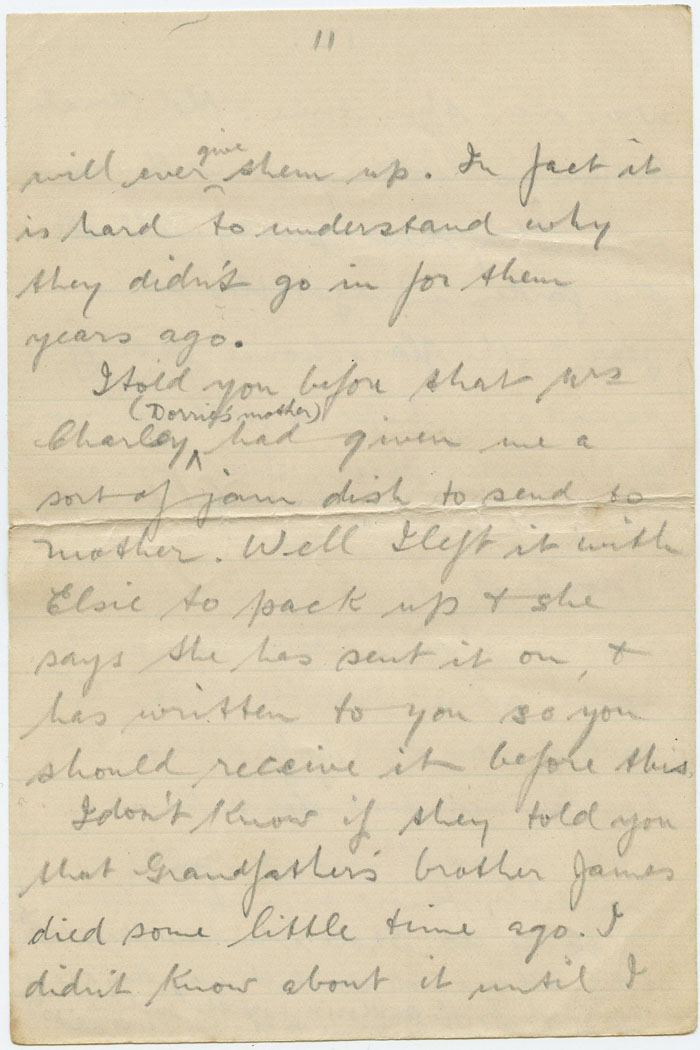 11
will ever give them up. In fact it
is hard to understand why
they didn't go in for them
years ago.
I told you before that Mrs
(Dorrie's mother)
Charley ^ had given me a
sort of jam dish to send to
mother. Well I left it with
Elsie to pack up & she
says she has sent it on, &
has written to you so you
should receive it before this.
I don't know if they told you
that Grandfather's brother James
died some little time ago. I
didn't know about it until I